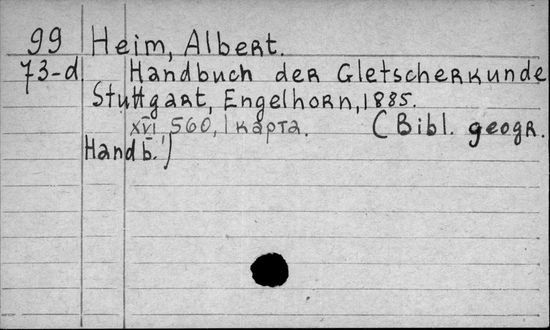 99 Heim, Albert.
73-d Handbuch der Gletscherkunde
Stuttgart, Engelhorn, 1885.
XVI, 560, 1 карта. (Bibl. geogr.
Handb.)